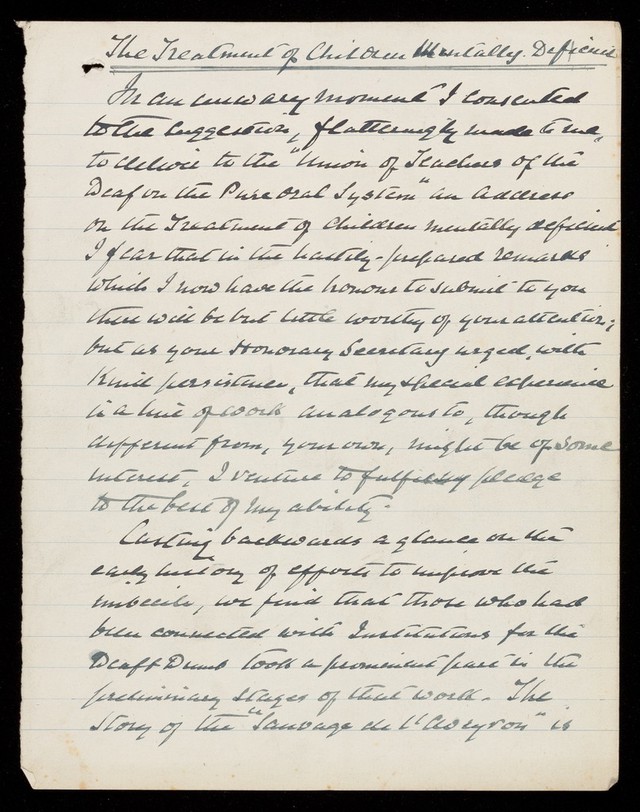 The Treatment of Children Mentally Deficient
In an unwary moment I consented
to the suggestion, flatteringly made to me,
to deliver to the "Union of Teachers of the
Deaf on the Pure Oral System" an Address
on the Treatment of children mentally deficient.
I fear that in the hastily-prepared remarks
which I now have the honour to submit to you
there will be but little worthy of your attention;
but as your Honorary Secretary urged, with
kind persistence, that my special experience
in a line of work analogous to, though
different from, your own, might be of some
interest, I venture to fulfil my pledge
to the best of my ability.
Casting backwards a glance on the
early history of efforts to improve the
imbecile, we find that those who had
been connected with Institutions for the
Deaf & Dumb took a prominent part in the
preliminary stages of that work. The
Story of the "Sauvage de l'Aveyron" is